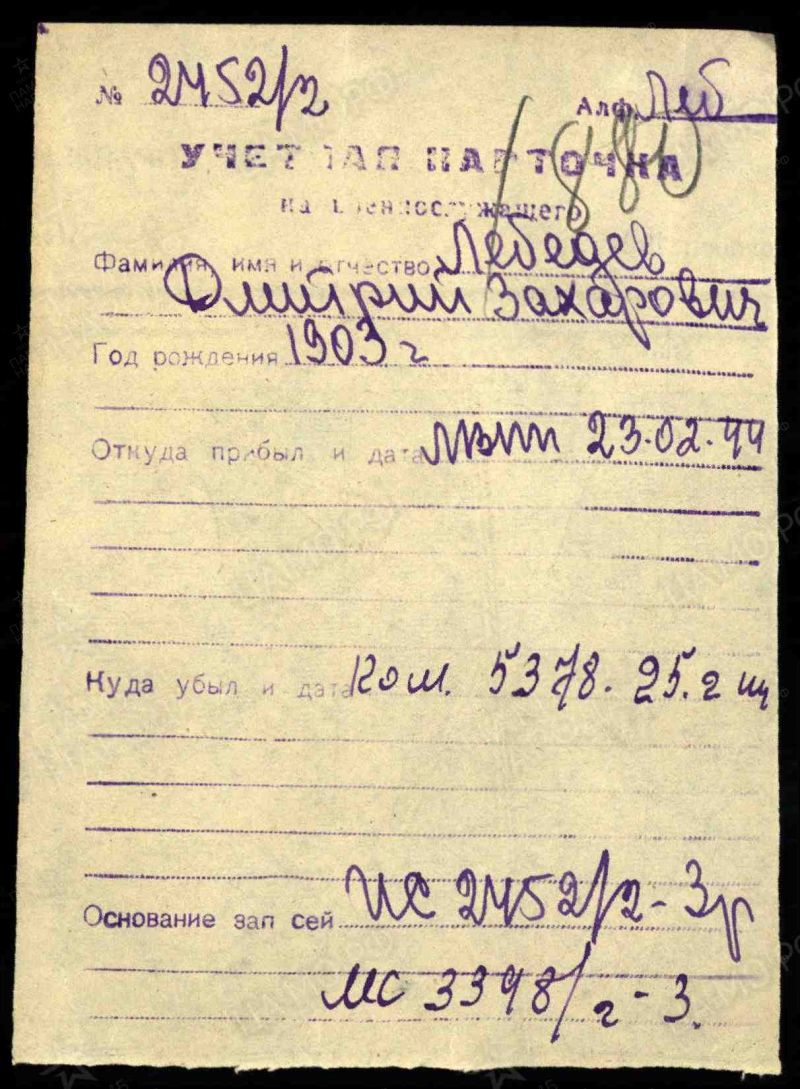 № 2452/2
Алф. Леб
УЧЕТНАЯ КАРТОЧКА
на военнослужащего
Фамилия, имя и отчество Лебедев
Дмитрий Захарович
Год рождения 1903 г
Откуда прибыл и дата ЛВПП 23.02.44
Куда убыл и дата Ком. 5378. 25.2
Основание записей ИС 2452/2-3
МС 3398/г-3.